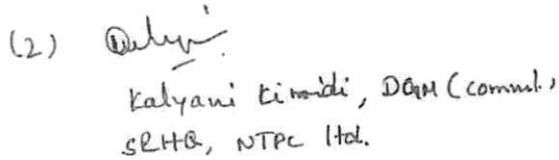 (2)
Kalyani Kinnidi, DGM (comml.,
SRHQ, NTPC ltd.